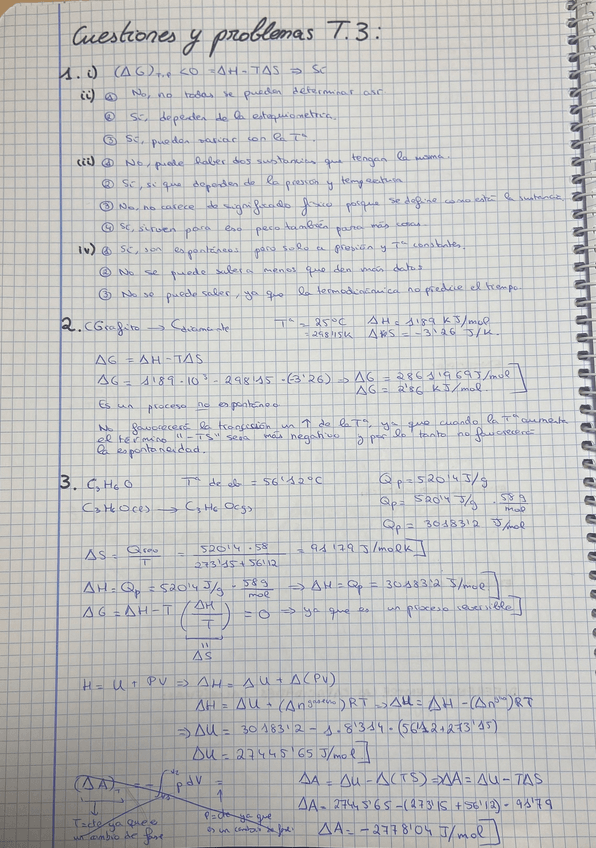 Cuestiones y problemas T.3:
1. i) (ΔG)T,P <0 = ΔH-TΔS ⇒ Sí
(ii) ① No, no todas se pueden determinar así
② Sí, dependen de la estequiometría.
③ Sí, pueden variar con la Tª
(iii) ① No, puede haber dos sustancias que tengan la misma.
② Sí, si que dependen de la presión y temperatura
③ No, no carece de significado físico porque se define como está la sustancia
④ Sí, sirven para eso pero también para más cosas.
iv) ① Sí, son espontáneas pero solo a presión y Tª constantes.
② No se puede saber a menos que den más datos
③ No se puede saber, ya que la termodinámica no predice el tiempo.
2. CGrafito → Cdiamante Tª = 25ºC ΔH = 1'89 KJ/mol
= 298'15K ΔS = -3'26 J/K.
ΔG = ΔH-TΔS
ΔG = 1'89·10³ - 298'15·(-3'26) ⇒ ΔG = 2861'969 J/mol
ΔG = 2'86 KJ/mol
Es un proceso no espontáneo
No favorecerá la transición un ↑ de la Tª, ya que cuando la Tª aumenta
el término "-TS" será más negativo y por lo tanto no favorecerá
la espontaneidad.
3. C3H6O Tª de eb = 56'12ºC Qp = 520'4 J/g
C3H6O(l) → C3H6O(g) Qp = 520'4 J/g · 58 g/mol
Qp = 30183'2 J/mol
ΔS = Qrev/T = 520'4·58/273'15+56'12 = 91'79 J/molK
ΔH = Qp = 520'4 J/g · 58g/mol ⇒ ΔH = Qp = 30183'2 J/mol
ΔG = ΔH-T (ΔH/T) = 0 ⇒ ya que es un proceso reversible
ΔS
H = U + PV ⇒ ΔH = ΔU + Δ(PV)
ΔH = ΔU + (Δn)RT ⇒ ΔU = ΔH - (Δn)RT
⇒ ΔU = 30183'2 - 1·8'314·(56'12+273'15)
ΔU = 27445'65 J/mol
(ΔA)T = -∫ pdV = ΔA = ΔU - Δ(TS) ⇒ ΔA = ΔU - TΔS
ΔA = 27445'65 - (273'15 + 56'12) · 91'79
T=cte ya que es un cambio de fase P=cte ya que es un cambio de fase.
ΔA = -2778'04 J/mol